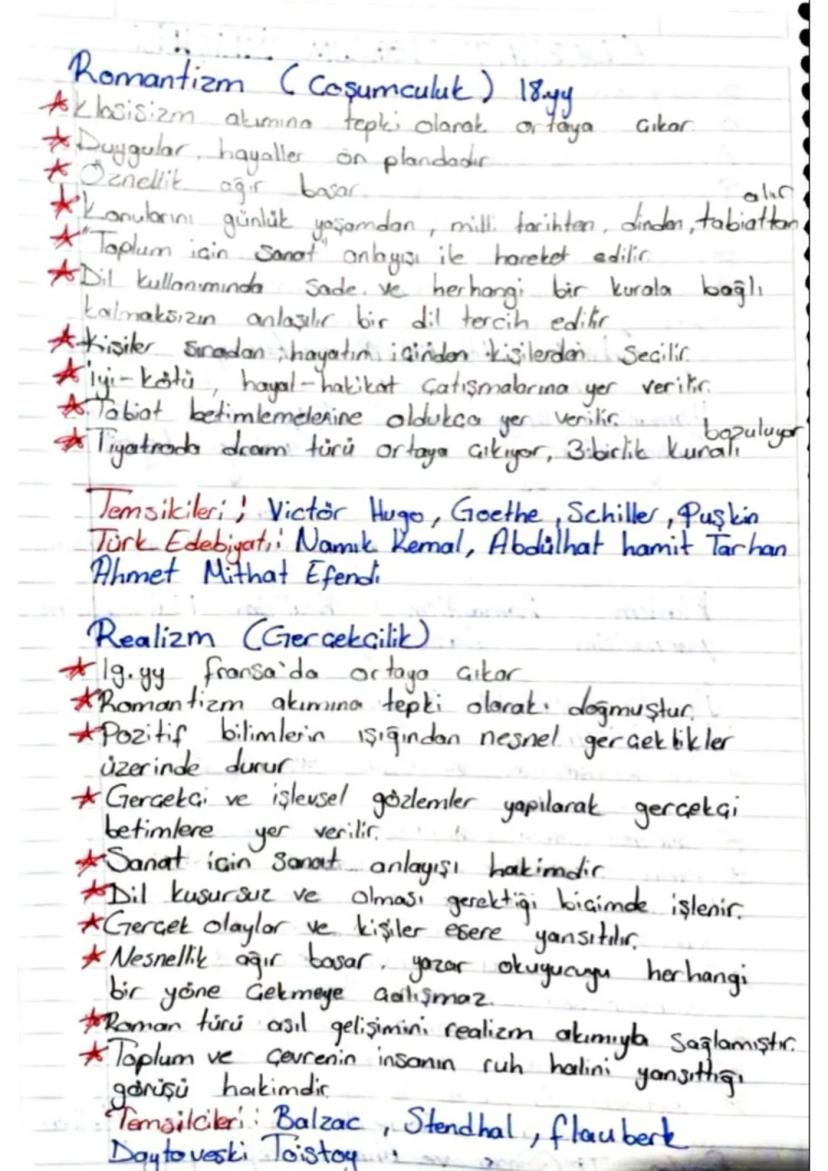 Romantizm (Coşumculuk) 18.yy
Klasisizm akımına tepki olarak ortaya çıkar.
Duygular, hayaller ön plandadır
Öznellik ağır basar.
Konularını günlük yaşamdan, milli tarihten, dinden, tabiattan alır
"Toplum için sanat" anlayışı ile hareket edilir.
Dil kullanımında sade ve herhangi bir kurala bağlı
kalmaksızın anlaşılır bir dil tercih edilir
Kişiler sıradan, hayatın içinden kişilerden seçilir.
İyi-kötü, hayal-hakikat çatışmalarına yer verilir.
Tabiat betimlemelerine oldukça yer verilir.
Tiyatroda dram türü ortaya çıkıyor, 3 birlik kuralı bozuluyor
Temsikileri; Victor Hugo, Goethe, Schiller, Puşkin
Türk Edebiyatı: Namık Kemal, Abdülhat hamit Tarhan
Ahmet Mithat Efendi
Realizm (Gerçekçilik)
19.yy fransa'da ortaya çıkar
Romantizm akımına tepki olarak doğmuştur.
Pozitif bilimlerin ışığından nesnel gerçeklikler
üzerinde durur
Gerçekçi ve işlevsel gözlemler yapılarak gerçekçi
betimlere yer verilir.
Sanat için sanat anlayışı hakimdir.
Dil kusursuz ve olması gerektiği biçimde işlenir.
Gerçek olaylar ve kişiler esere yansıtılır.
Nesnellik ağır basar. yazar okuyucuyu herhangi
bir yöne çekmeye çalışmaz.
Roman türü asıl gelişimini realizm akımıyla sağlamıştır.
Toplum ve çevrenin insanın ruh halini yansıttığı
görüşü hakimdir
Temsilcileri: Balzac, Stendhal, flauberk
Daytoveski Toistoy